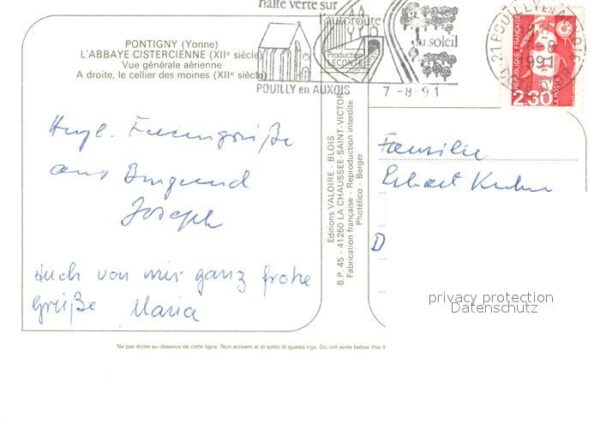 halte verte sur
l'autoroute
du soleil
Production
LECONTE
POUILLY en AUXOIS
7-8 91
21 POUILLY EN AUXOIS
1991
REPUBLIQUE FRANÇAISE
2,30
PONTIGNY (Yonne)
L'ABBAYE CISTERCIENNE (XIIe siècle)
Vue générale aérienne
A droite, le cellier des moines (XIIe siècle)
Hrzl. Feriengrüße
aus Burgund
Joseph
auch von mir ganz frohe
Grüße Maria
Editions VALOIRE - BLOIS
B.P. 45 - 41260 LA CHAUSSEE-SAINT-VICTOR
Fabrication française - Reproduction interdite
Photélico - Berger
Familie
D
privacy protection
Datenschutz
Ne pas écrire au-dessous de cette ligne. Non scrivere al di sotto di questa riga. Do not write below this li